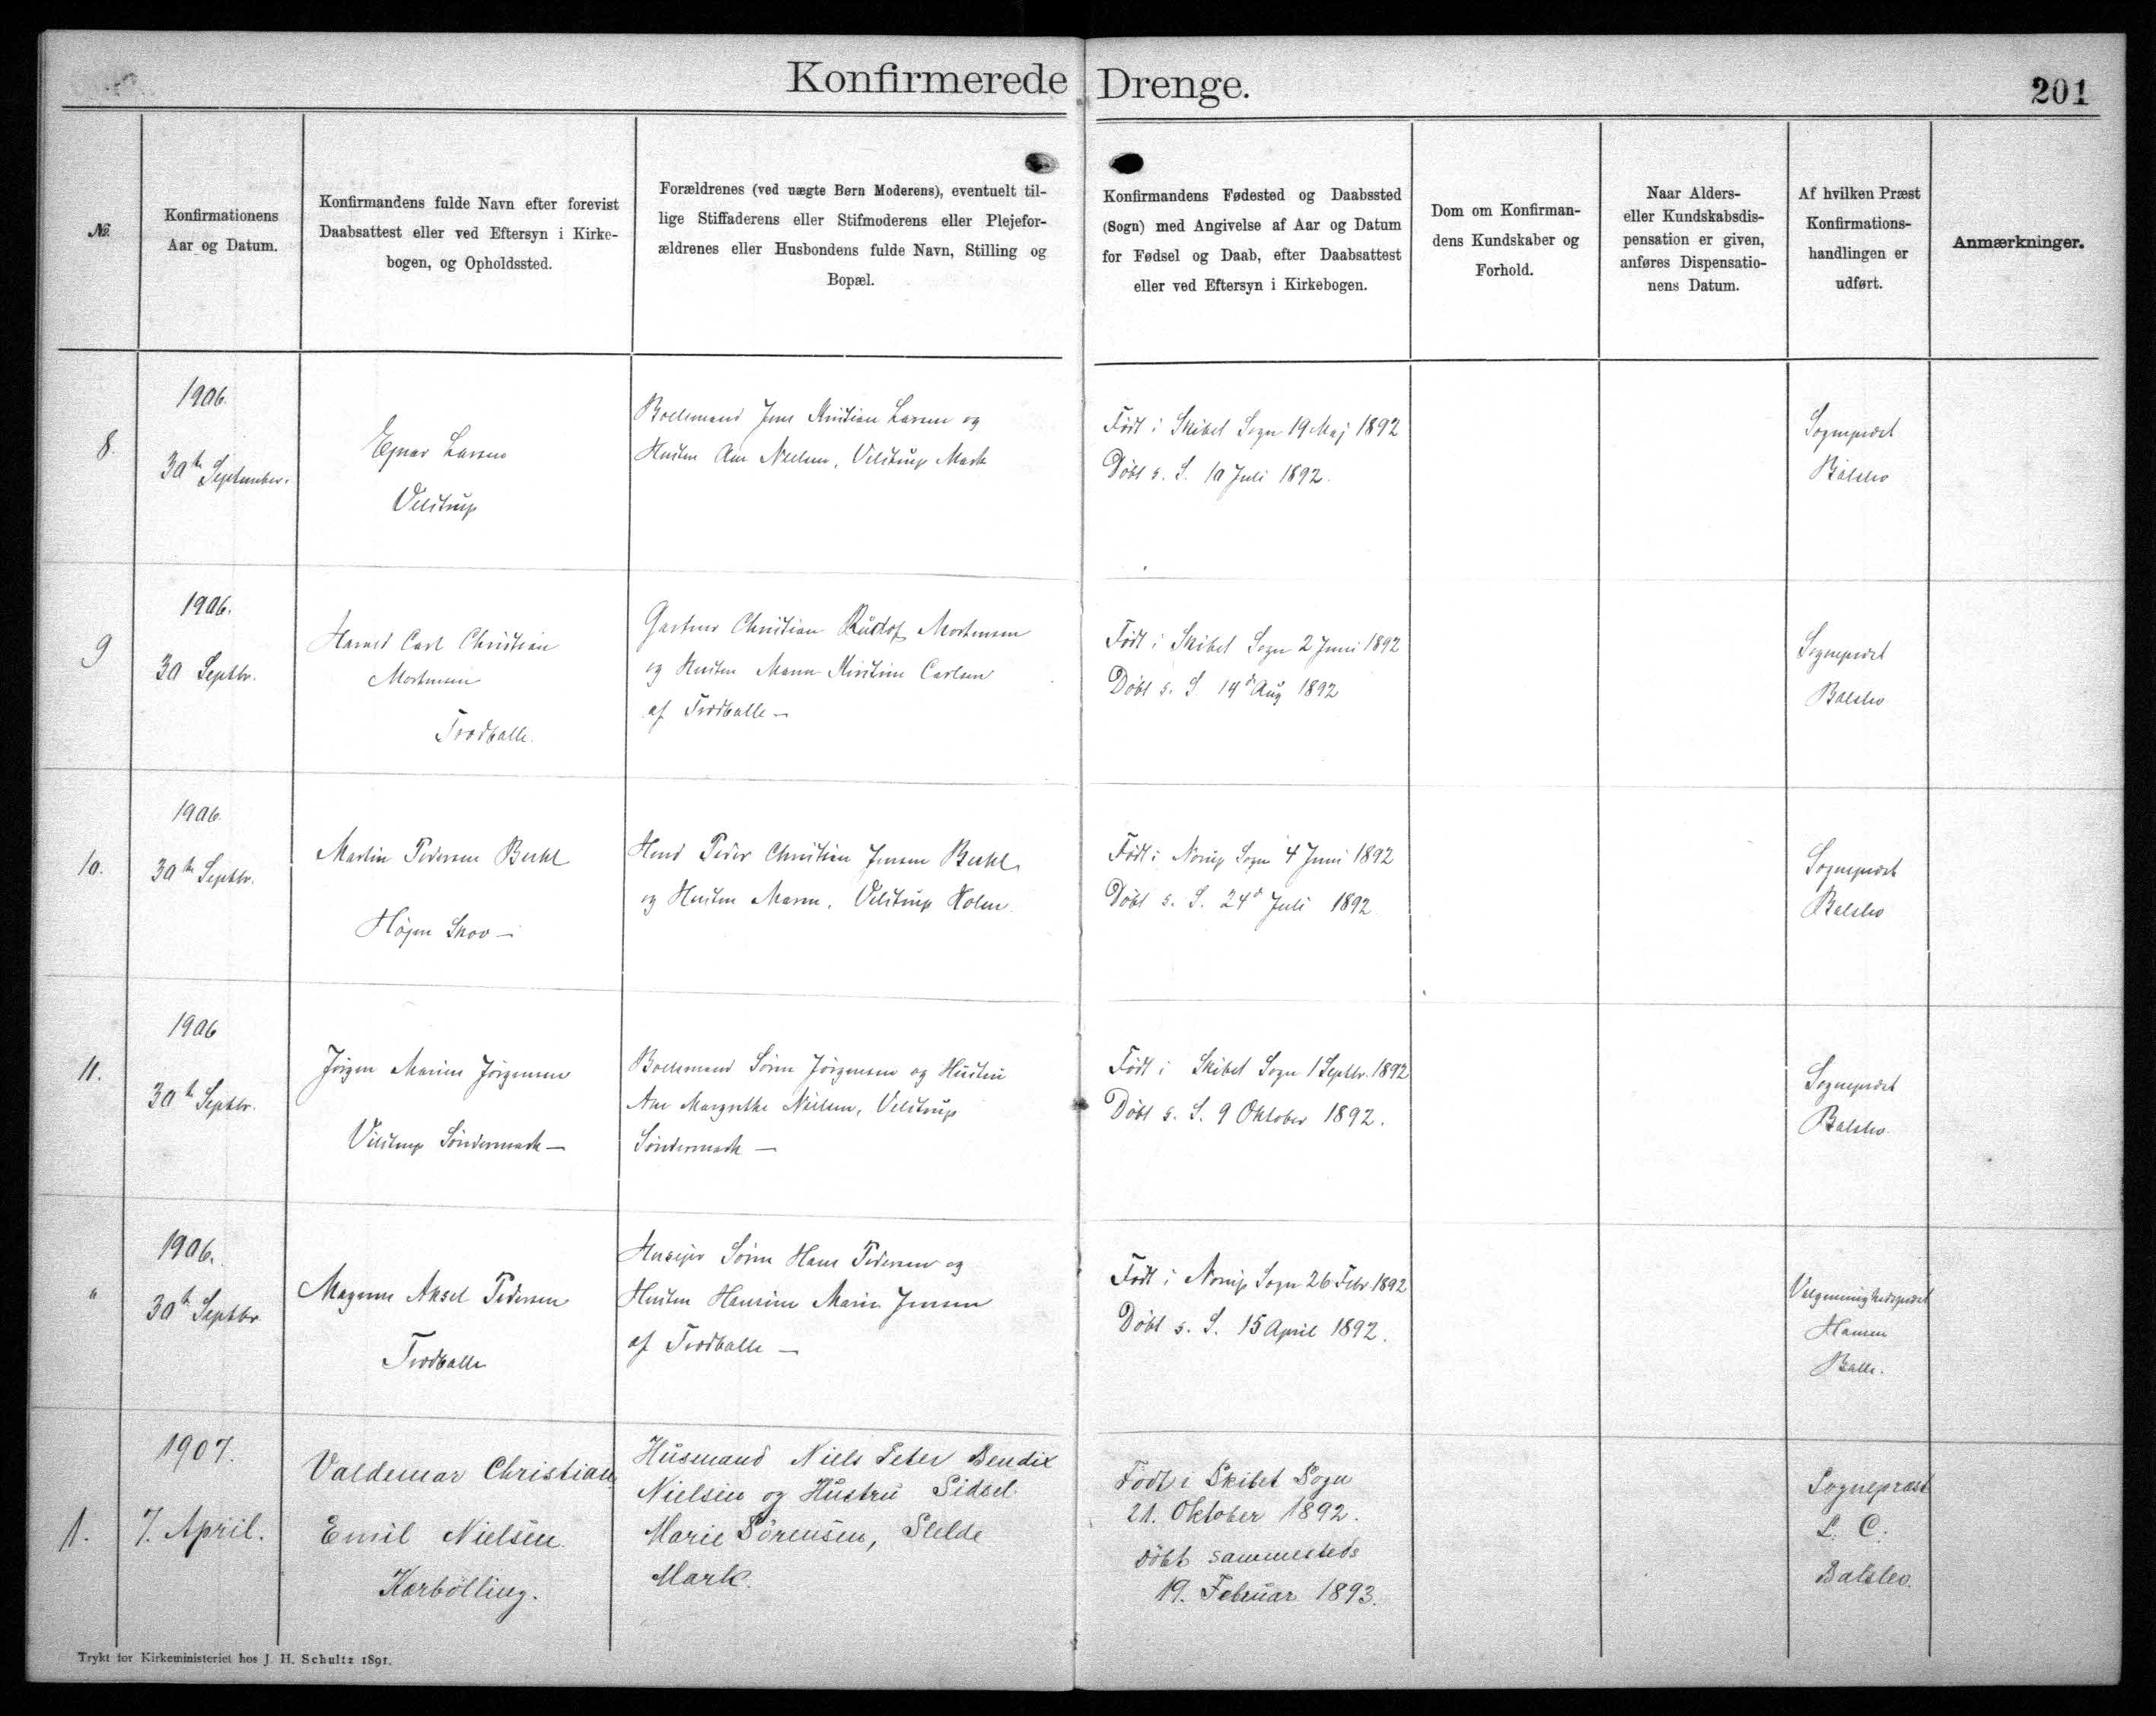 Konfirmerede Drenge.
201
№.
Konfirmationens
Aar og Datum.
Konfirmandens fulde Navn efter forevist
Daabsattest eller ved Eftersyn i Kirke-
bogen, og Opholdssted.
Forældrenes (ved uægte Børn Moderens), eventuelt til-
lige Stiffaderens eller Stifmoderens eller Plejefor-
ældrenes eller Husbondens fulde Navn, Stilling og
Bopæl.
Konfirmandens Fødested og Daabssted
(Sogn) med Angivelse af Aar og Datum
for Fødsel og Daab, efter Daabsattest
eller ved Eftersyn i Kirkebogen.
Dom om Konfirman-
dens Kundskaber og
Forhold.
Naar Alders-
eller Kundskabsdis-
pensation er given,
anføres Dispensatio-
nens Datum.
Af hvilken Præst
Konfirmations-
handlingen er
udført.
Anmærkninger.
8.
1906.
30te September.
Ejnar Larsen
Vilstrup
Boelsmand Jens Kristian Larsen og
Hustru Ane Nielsen, Vilstrup Mark
Født i Skibet Sogn 19 Maj 1892
Døbt s. S. 10 Juli 1892.
Sognepræst
Balslev
9
1906.
30 Septbr.
Harald Carl Christian
Mortensen
Trædballe.
Gartner Christian Rudolf Mortensen
og Hustru Maren Kirstine Carlsen
af Trædballe —
Født i Skibet Sogn 2 Juni 1892
Døbt s. S. 14d Aug 1892
Sognepræst
Balslev
10.
1906.
30te Septbr.
Martin Pedersen Buhl
Højen Skov —
Hmd Peder Christian Jensen Buhl
og Hustru Maren, Vilstrup Holm.
Født i Norup Sogn 4 Juni 1892
Døbt s. S. 24d Juli 1892
Sognepræst
Balslev
11.
1906
30te Septbr.
Jørgen Marius Jørgensen
Vilstrup Søndermark —
Boelsmand Søren Jørgensen og Hustru
Ane Margrethe Nielsen, Vilstrup
Søndermark —
Født i Skibet Sogn 1 Septbr. 1892
Døbt s. S. 9 Oktober 1892.
Sognepræst
Balslev.
"
1906.
30te Septbr
Magnus Aksel Pedersen
Trædballe
Husejer Søren Hans Pedersen og
Hustru Hansine Marie Jensen
af Trædballe —
Født i Norup Sogn 26 Febr 1892
Døbt s. S. 15 April 1892.
Valgmenighedspræst
Hansen
Balle.
1.
1907.
7. April.
Valdemar Christian
Emil Nielsen
Kærbølling.
Husmand Niels Peter Bendix
Nielsen og Hustru Sidsel
Marie Sørensen, Slelde
Mark.
Født i Skibet Sogn
21. Oktober 1892.
Døbt sammesteds
19. Februar 1893.
Sognepræst
L. C.
Balslev.
Trykt for Kirkeministeriet hos J. H. Schultz 1891.